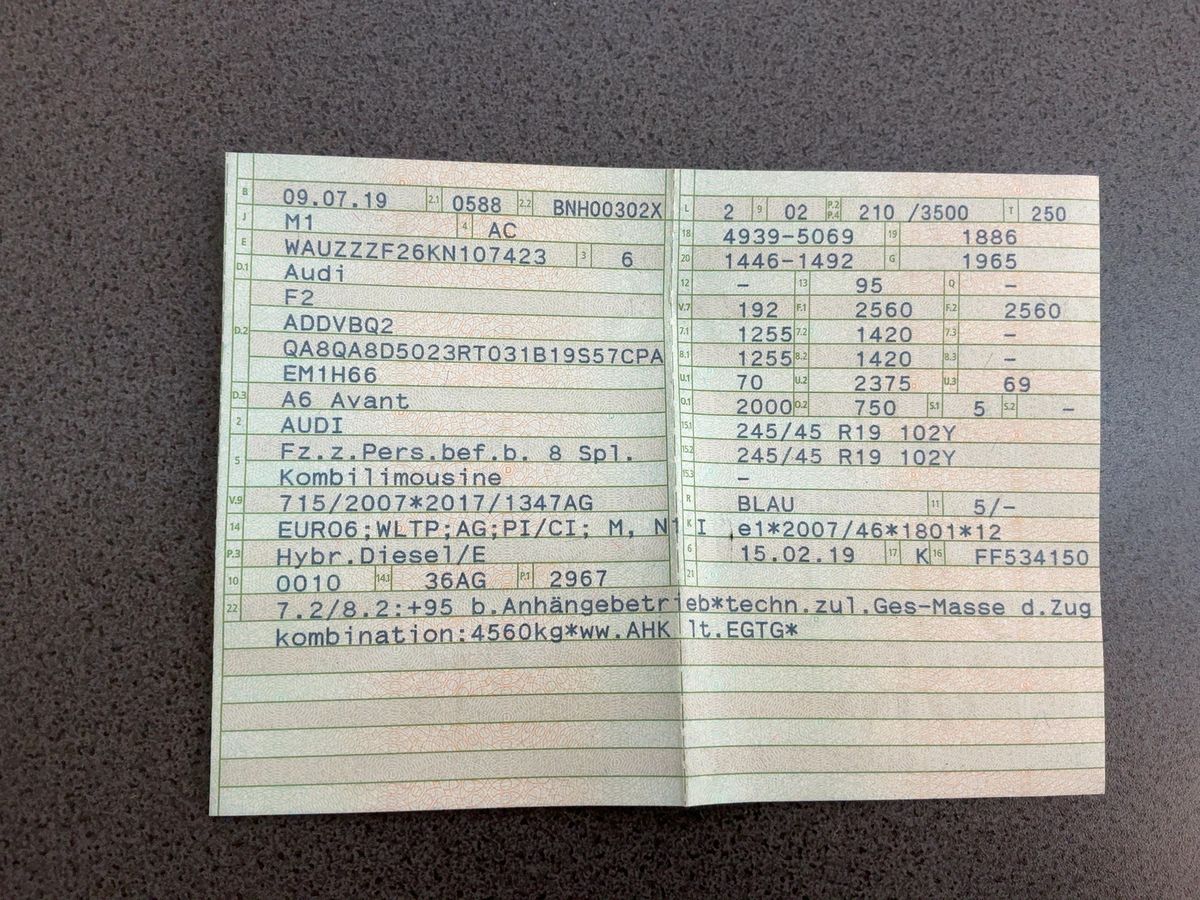 B 09.07.19 2.1 0588 2.2 BNH00302X
J M1 4 AC
E WAUZZZF26KN107423 3 6
D.1 Audi
F2
D.2 ADDVBQ2
QA8QA8D5023RT031B19S57CPA
EM1H66
D.3 A6 Avant
2 AUDI
5 Fz.z.Pers.bef.b. 8 Spl.
Kombilimousine
V.9 715/2007*2017/1347AG
14 EURO6;WLTP;AG;PI/CI; M, N1 I
P.3 Hybr.Diesel/E
10 0010 14.1 36AG P.1 2967
L 2 9 02 P.2 P.4 210 /3500 T 250
18 4939-5069 19 1886
20 1446-1492 G 1965
12 - 13 95 Q -
V.7 192 F.1 2560 F.2 2560
7.1 1255 7.2 1420 7.3 -
8.1 1255 8.2 1420 8.3 -
U.1 70 U.2 2375 U.3 69
O.1 2000 O.2 750 S.1 5 S.2 -
15.1 245/45 R19 102Y
15.2 245/45 R19 102Y
15.3 -
R BLAU 11 5/-
K e1*2007/46*1801*12
6 15.02.19 17 K 16 FF534150
21
22 7.2/8.2:+95 b.Anhängebetrieb*techn.zul.Ges-Masse d.Zug
kombination:4560kg*ww.AHK lt.EGTG*